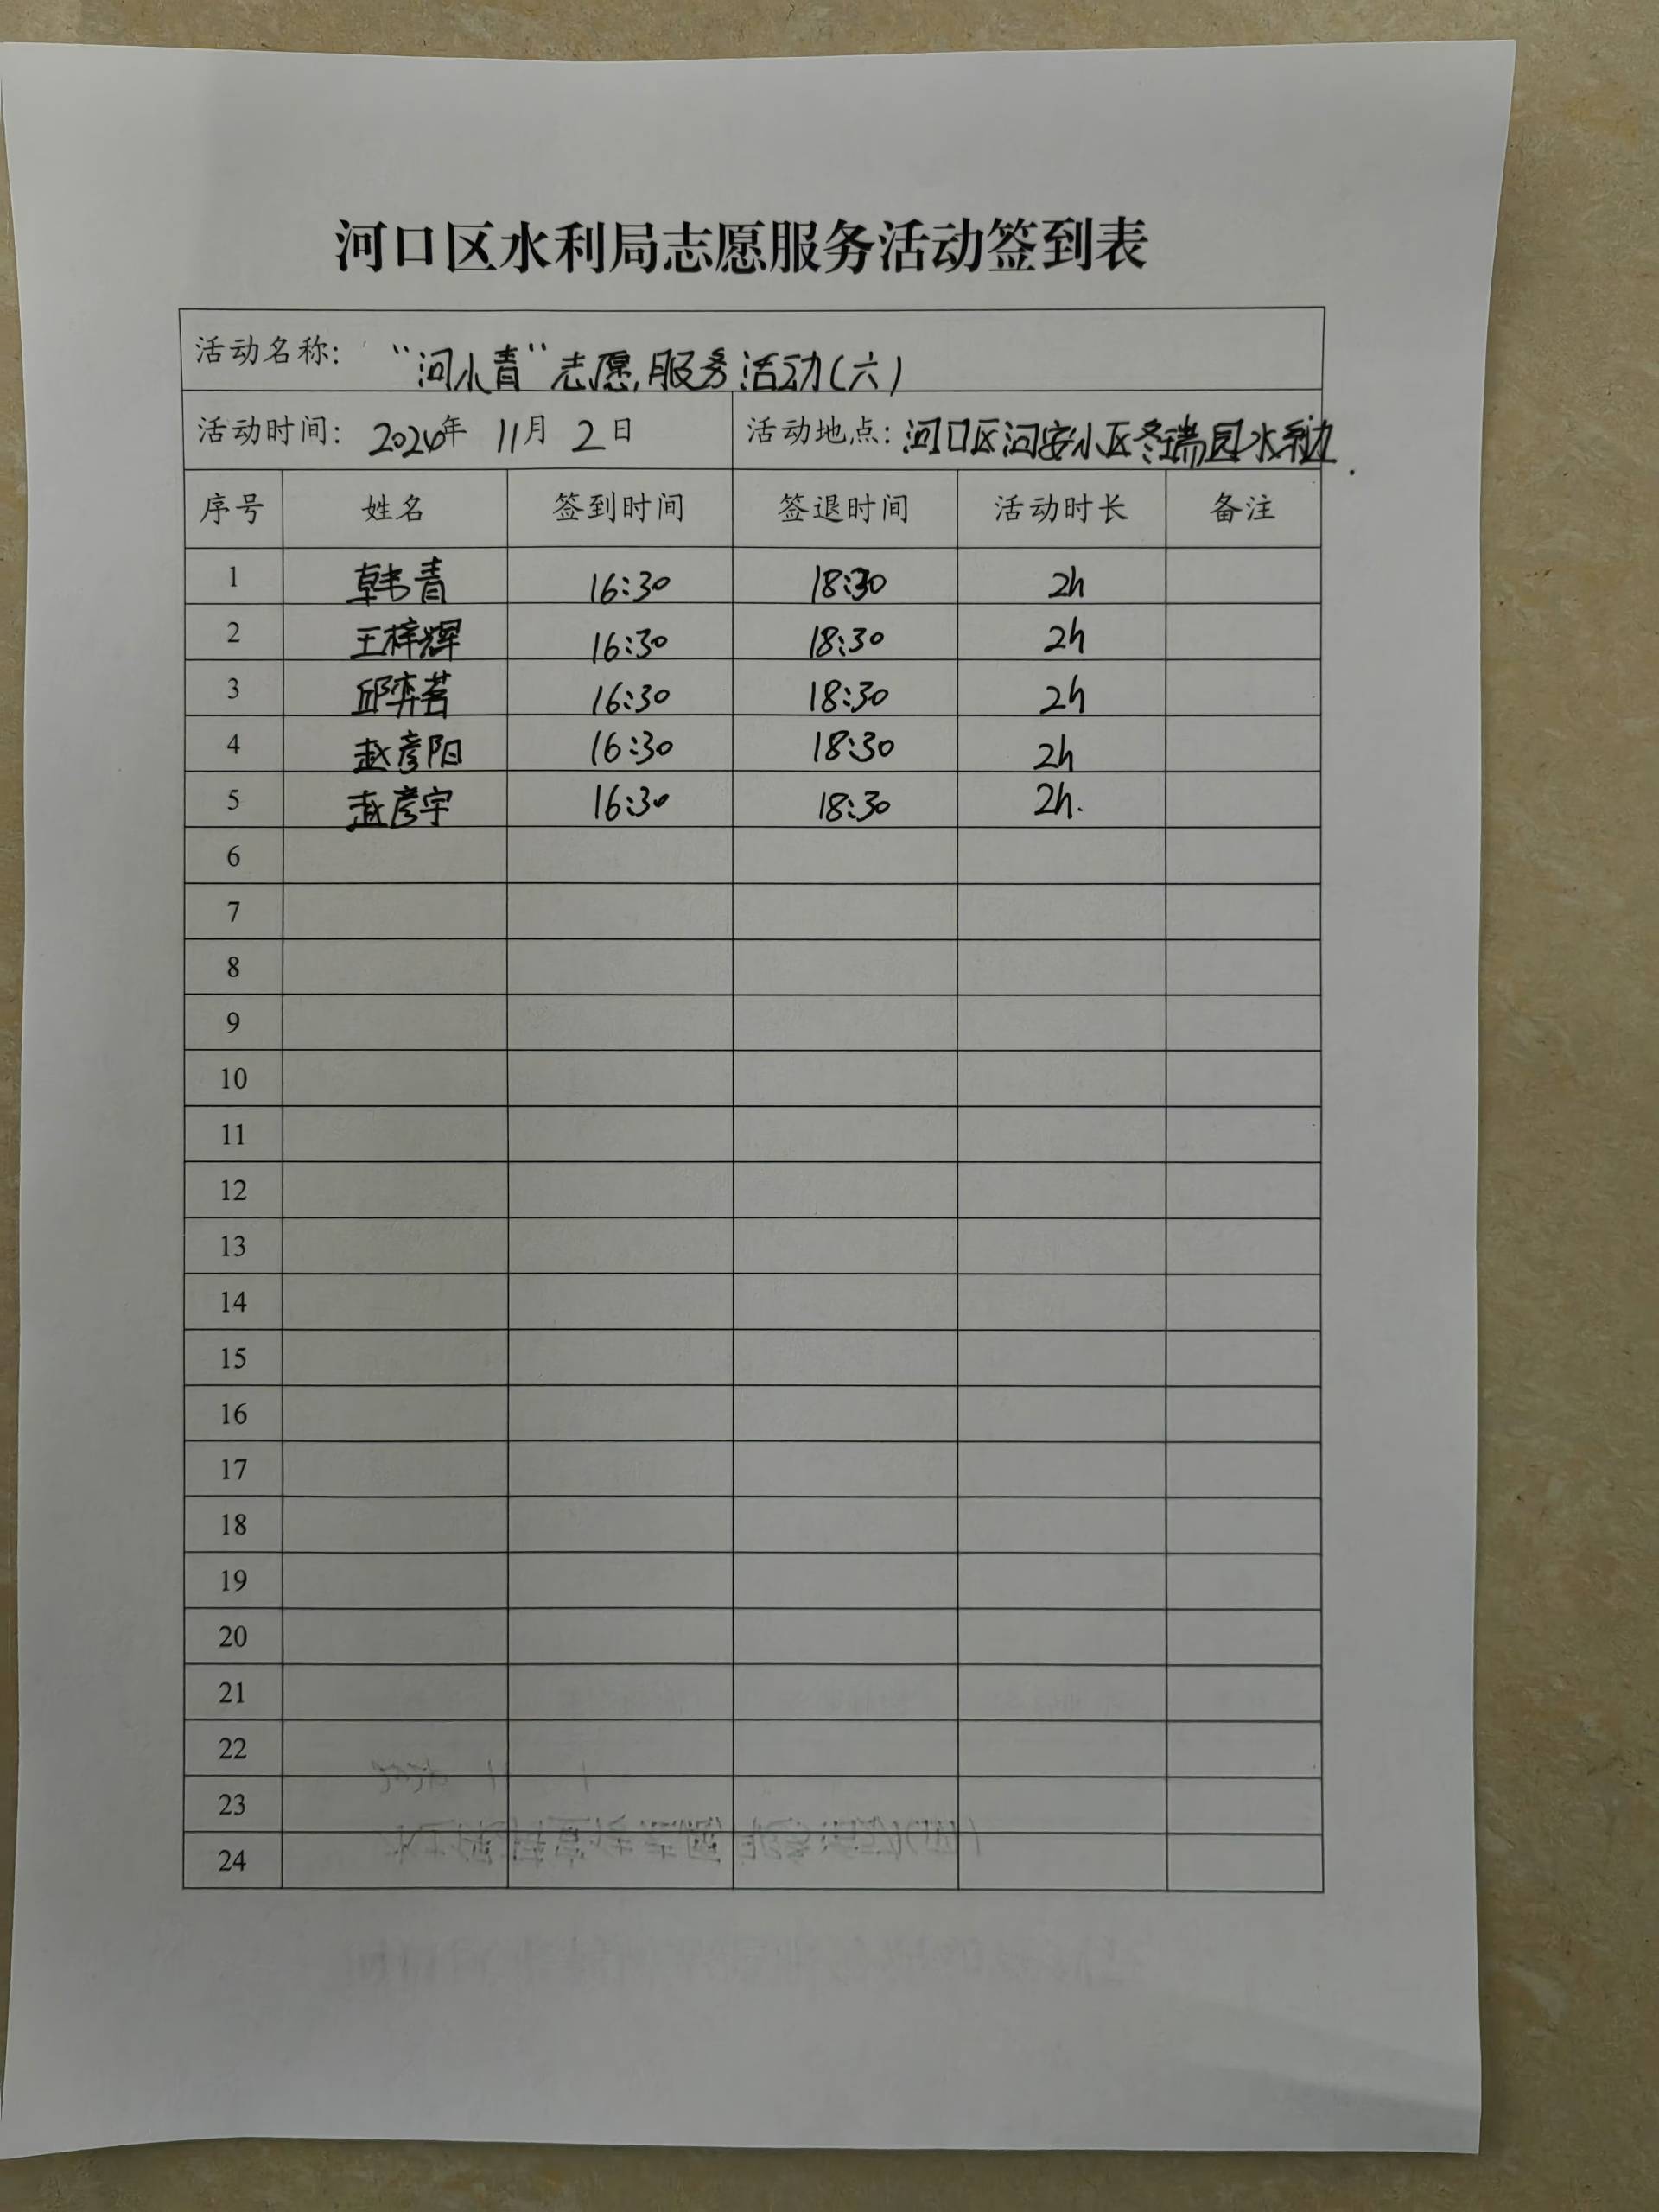 河口区水利局志愿服务活动签到表
活动名称: “河小青”志愿服务活动(六)
活动时间: 2024年 11月 2日 活动地点: 河口区河安小区冬瑞园水系边.
序号 姓名 签到时间 签退时间 活动时长 备注
1 韩青 16:30 18:30 2h
2 王梓辉 16:30 18:30 2h
3 邱弈茗 16:30 18:30 2h
4 赵彦阳 16:30 18:30 2h
5 赵彦宇 16:30 18:30 2h.
6
7
8
9
10
11
12
13
14
15
16
17
18
19
20
21
22
23
24